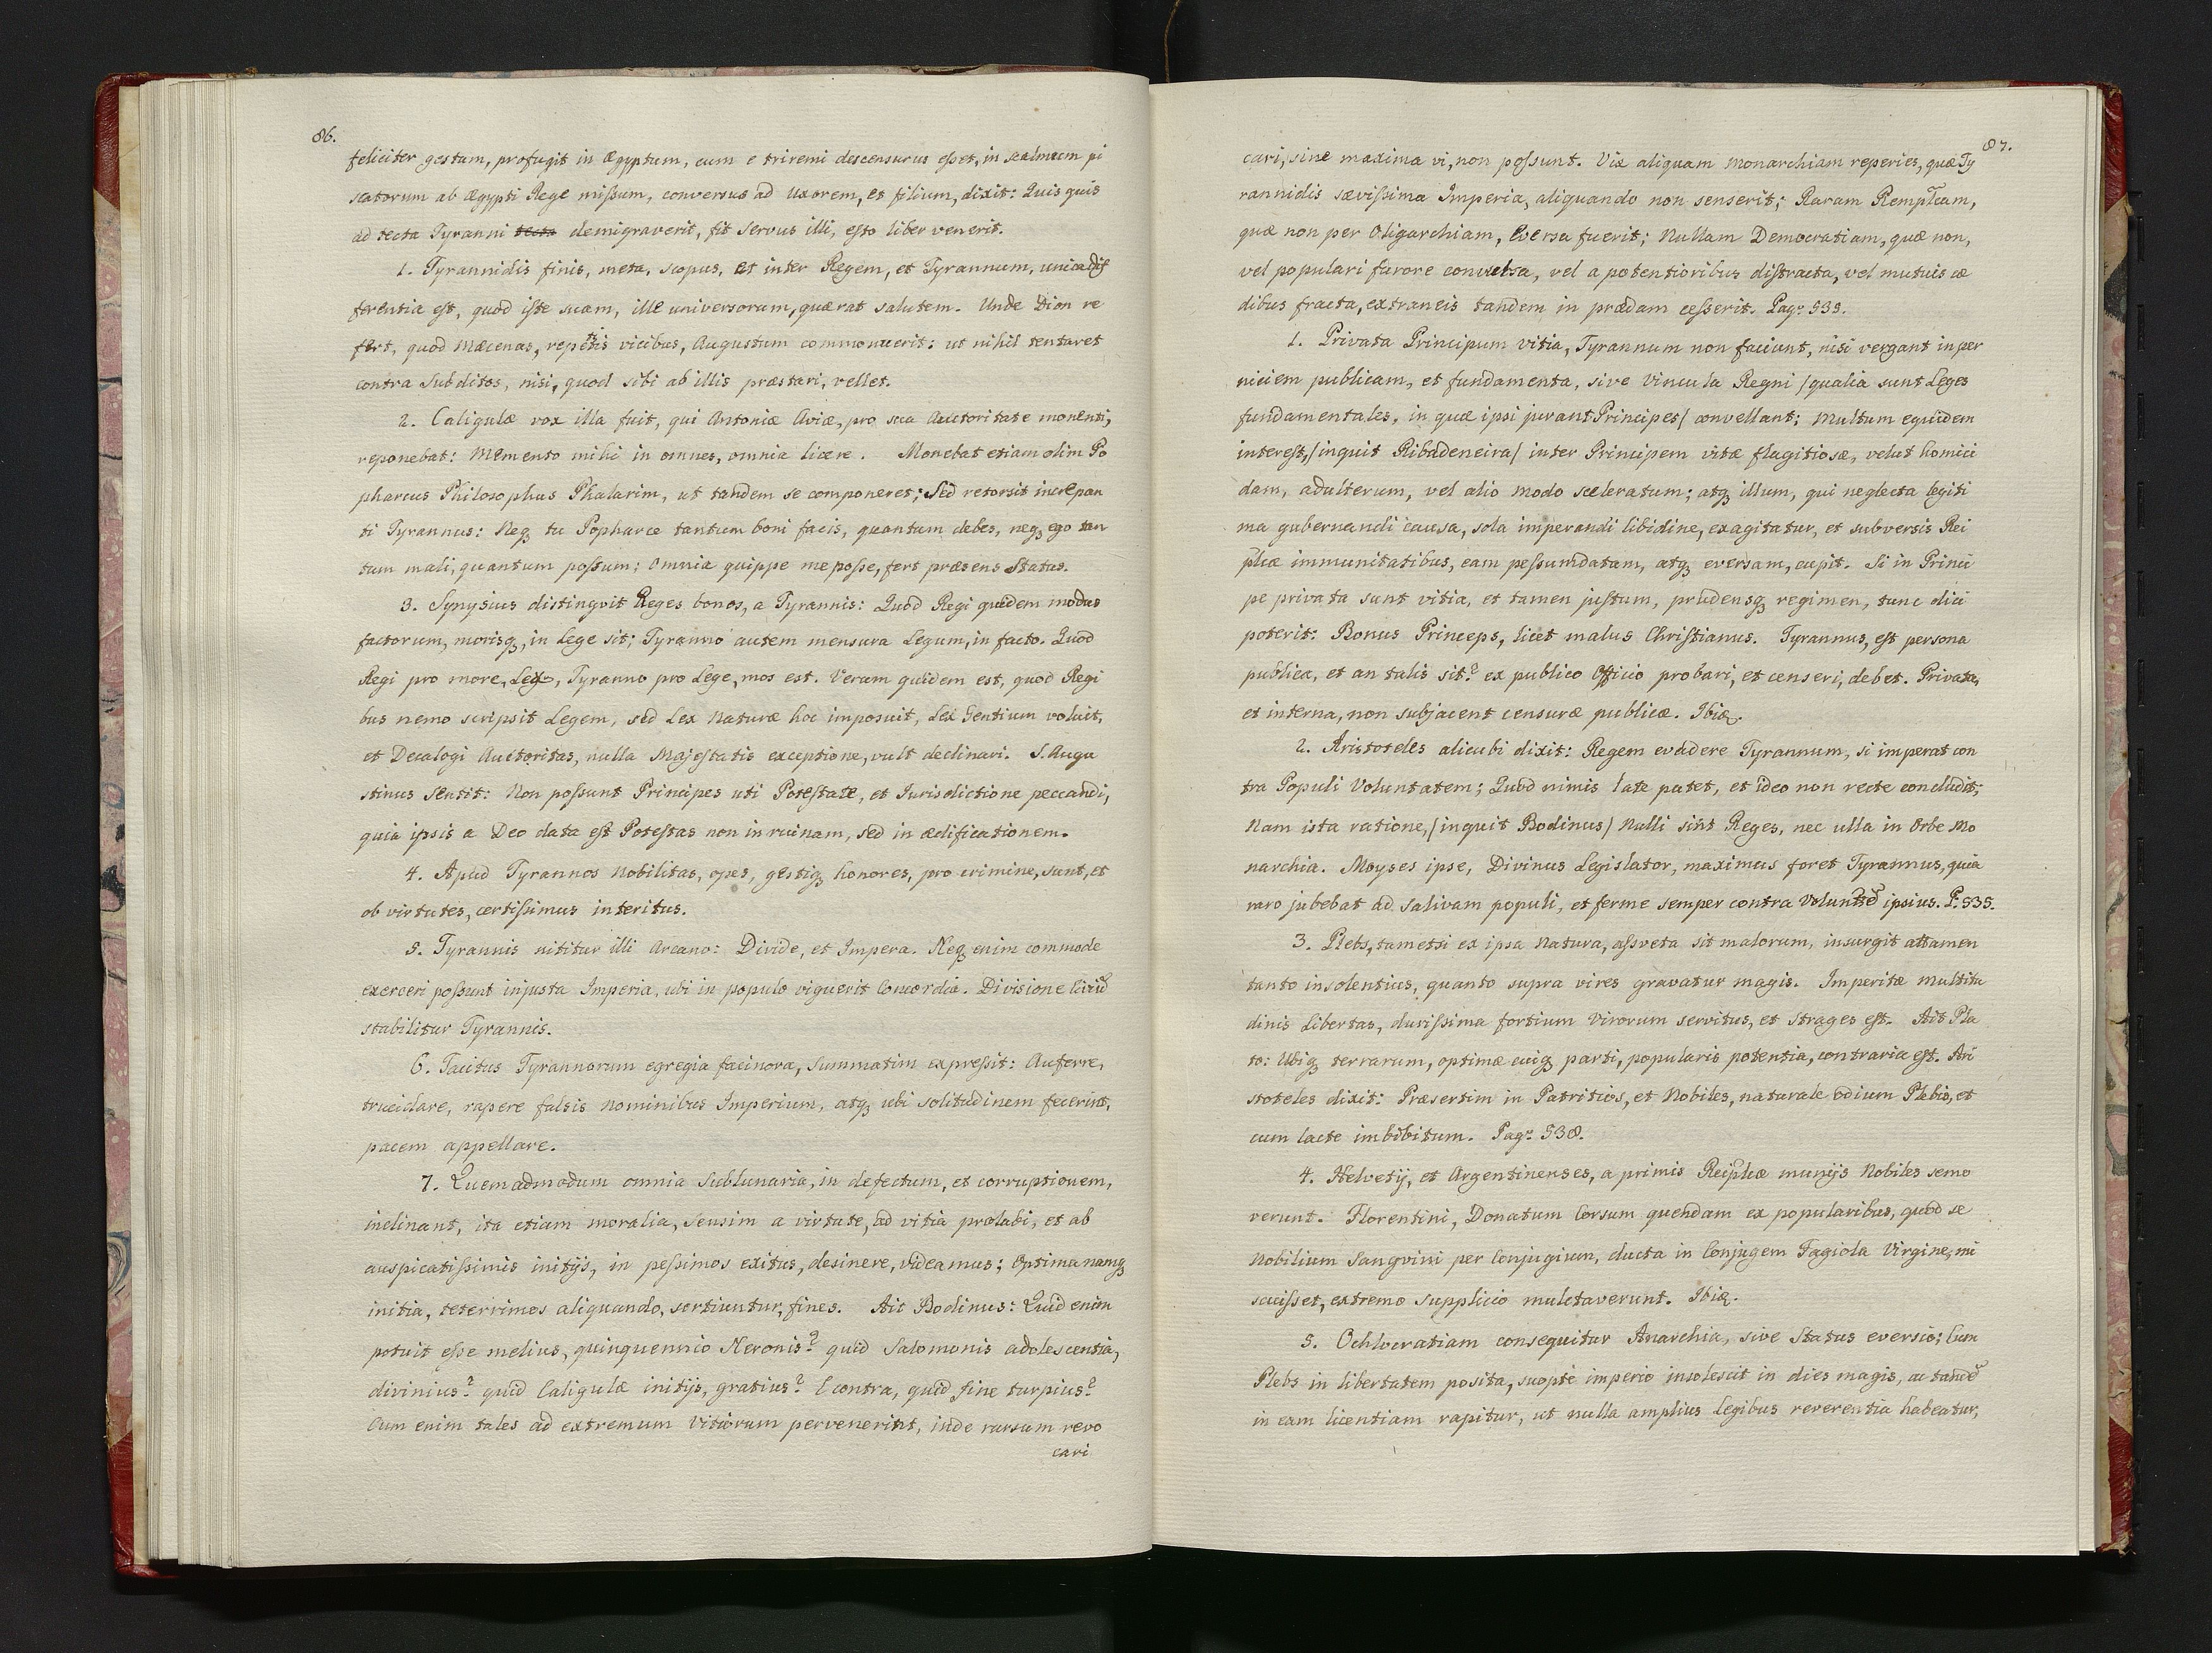 86.
feliciter gestam, profugit in Ægyptum, cum e triremi descensurus esset, in scalmum pi
scatorum ab Ægypti Rege missum, conversus ad Uxorem, et filium, dixit: Quis quis
ad tecta Tyranni tecta demigraverit, fit servus illi, esto liber venerit.
1. Tyrannidis finis, meta, scopus, et inter Regem, et Tyrannum, unica dif
ferentia est, quod iste suam, ille universorum, quærat salutem. Unde Dion re
fert, quod Mæcenas, repetitis vicibus, Augustum commonuerit: ut nihil tentaret
contra Subditos, nisi, quod sibi ab illis præstari, vellet.
2. Caligulæ vox illa fuit, qui Antoniæ Aviæ, pro sua Auctoritate monenti,
reponebat: Memento mihi in omnes, omnia licere. Monebat etiam olim Po
pharcus Philosophus Phalarim, ut tandem se componeret; Sed retorsit increpan
ti Tyrannus: Neq tu Popharce tantum boni facis, quantum debes, neq ego tan
tum mali, quantum possum: Omnia quippe me posse, fert præsens Status.
3. Synysius distingvit Reges bonos, a Tyrannis: Quod Regi quidem modus
factorum, morisq, in Lege sit; Tyranno autem mensura Legum, in facto. Quod
Regi pro more, Lex, Tyranno pro Lege, mos est. Verum quidem est, quod Regi
bus nemo scripsit Legem, sed Lex Naturæ hoc imposuit, Lex Gentium voluit,
et Decalogi Auctoritas, nulla Majestatis exceptione, vult declinari. S. Augu
stinus sentit: Non possunt Principes uti Potestate, et Jurisdictione peccandi,
quia ipsis a Deo data est Potestas non in ruinam, sed in ædificationem.
4. Apud Tyrannos Nobilitas, opes, gestiq honores, pro crimine, sunt, et
ob virtutes, certissimus interitus.
5. Tyrannis nititur illi Arcano: Divide, et Impera. Neq enim commode
exerceri possunt injusta Imperia, ubi in populo viguerit Concordia. Divisione Civiũ
stabilitur Tyrannis.
6. Tacitus Tyrannorum egregia facinora, Summatim expressit: Auferre,
trucidare, rapere falsis Nominibus Imperium, atq ubi solitudinem fecerint,
pacem appellare.
7. Quemadmodum omnia Sublunaria, in defectum, et corruptionem,
inclinant, ita etiam moralia, sensim a virtute, ad vitia prolabi, et ab
auspicatissimis initijs, in pessimos exitus, desinere, videamus; Optima namq
initia, teterrimos aliquando, sortiuntur, fines. Ait Bodinus: Quid enim
potuit esse melius, quinquennio Neronis? quid Salomonis adolescentia,
divinius? quid Caligulæ initijs, gratius? E contra, quid fine turpius?
Cum enim tales ad extremum Vitiorum pervenerint, inde rursum revo
cari
87.
cari, sine maxima vi, non possunt. Vix aliquam Monarchiam reperies, quæ Ty
rannidis sævissima Imperia, aliquando non senserit; Raram Rempl̃cam,
quæ non per Oligarchiam, Eversa fuerit; Nullam Democratiam, quæ non,
vel populari furore convulsa, vel a potentioribus distracta, vel mutuis cæ
dibus fracta, extraneis tandem in prædam cesserit. Pag: 535.
1. Privata Principum vitia, Tyrannum non faciunt, nisi vergant in per
niciem publicam, et fundamenta, sive Vincula Regni / qualia sunt Leges
fundamentales, in quæ ipsi jurant Principes / convellant; Multum equidem
interest, / inquit Ribadeneira / inter Principem vitæ flagitiosæ, velut homici
dam, adulterum, vel alio modo sceleratum; atq illum, qui neglecta legiti
ma gubernandi causa, sola imperandi libidine, exagitatur, et subversis Rei
pl̃icæ immunitatibus, eam pessumdatam, atq eversam, cupit. Si in Princi
pe privata sunt vitia, et tamen justum, prudensq regimen, tunc dici
poterit: Bonus Princeps, licet malus Christianus. Tyrannus, est persona
publica, et an talis sit? ex publico Officio probari, et censeri, debet. Privata,
et interna, non subjacent censuræ publicæ. Ibid.
2. Aristoteles alicubi dixit: Regem evadere Tyrannum, si imperat con
tra Populi Voluntatem; Quod nimis late patet, et ideo non recte concludit;
Nam ista ratione, / inquit Bodinus / Nulli sint Reges, nec ulla in Orbe Mo
narchia. Moyses ipse, Divinus Legislator, maximus foret Tyrannus, quia
raro jubebat ad Salivam populi, et ferme semper contra Voluntẽ ipsius. P: 535.
3. Plebs, tametsi ex ipsa Natura, assveta sit malorum, insurgit attamen
tanto insolentius, quanto supra vires gravatur magis. Imperitæ Multitu
dinis Libertas, durissima fortium Virorum servitus, et Strages est. Ait Pla
to: Ubiq terrarum, optimæ cuiq parti, popularis potentia, contraria est. Ari
stoteles dixit: Præsertim in Patritios, et Nobiles, naturale odium Plebis, et
cum lacte imbibitum. Pag: 538.
4. Helvetij, et Argentinenses, a primis Reipl̃cæ munijs Nobiles semo
verunt. Florentini, Donatum Corsum quendam ex popularibus, quod se
Nobilium Sangvini per Conjugium, ducta in Conjugem Fagiola Virgine, mi
scuisset, extremo supplicio mulctaverunt. Ibid.
5. Ochlocratiam consequitur Anarchia, sive Status eversio; Cum
Plebs in libertatem posita, suopte imperio insolescit in dies magis, ac tandẽ
in eam licentiam rapitur, ut nulla amplius legibus reverentia habeatur,